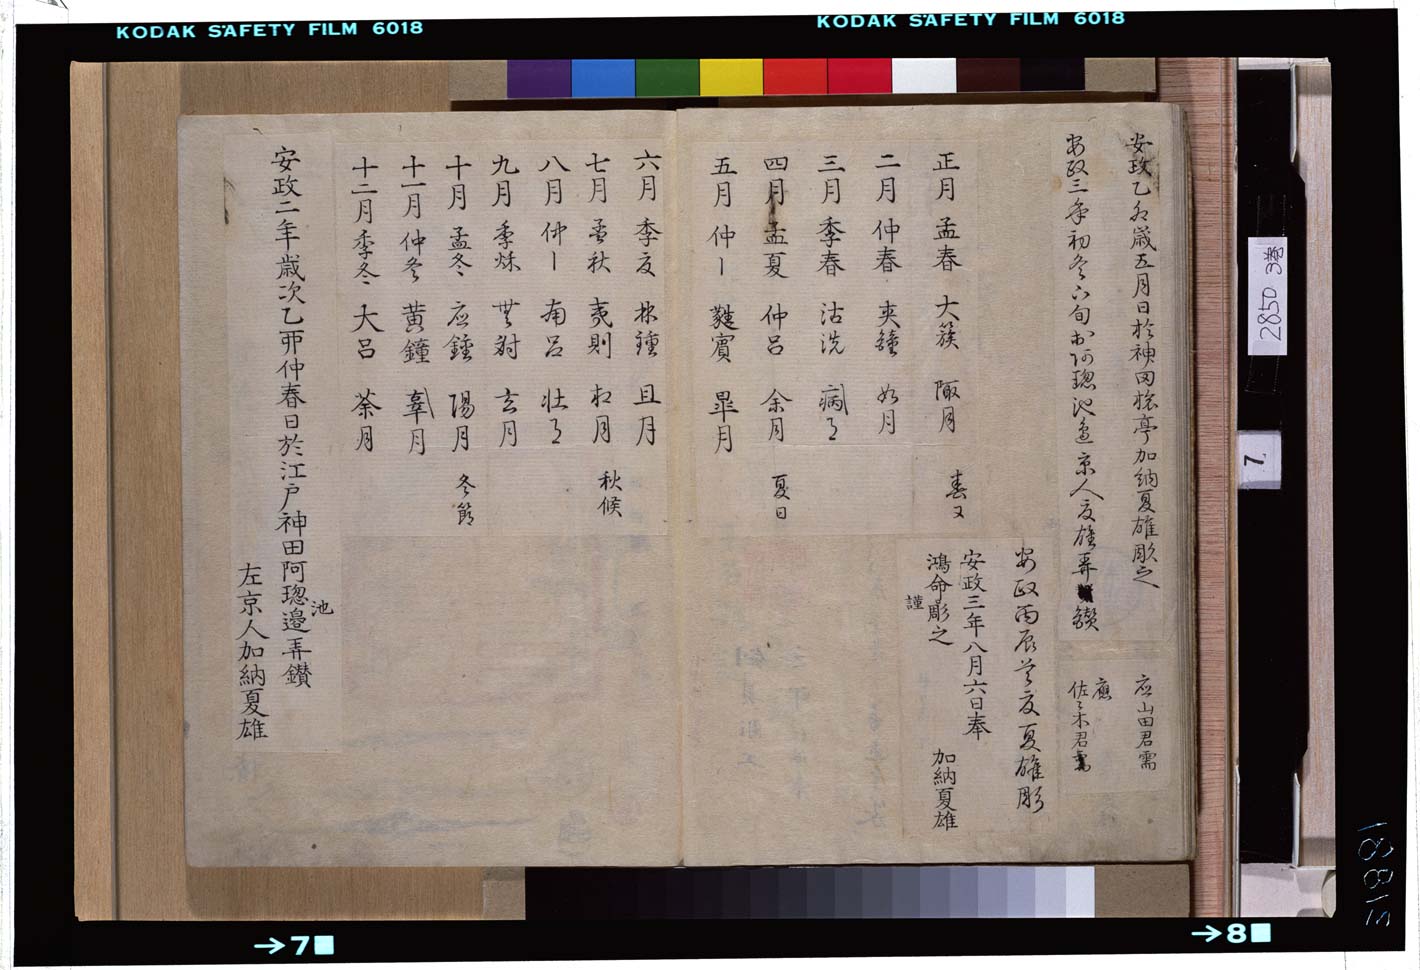 KODAK SAFETY FILM 6018
KODAK SAFETY FILM 6018
安政乙卯歳五月日於神田 亭加納夏雄彫之
応山田君需
安政三年初冬下旬於阿璁池邊京人夏雄弄鑚
應
佐々木君需
安政丙辰 夏夏雄彫
安政三年八月六日奉
鴻命彫之
謹
加納夏雄
正月 孟春 大簇 陬月 春又
二月 仲春 夾鐘 如月
三月 季春 沽洗 病月
四月 孟夏 仲呂 余月 夏日
五月 仲〡 蕤賓 皐月
六月 季夏 林鐘 且月
七月 孟秋 夷則 相月 秋候
八月 仲〡 南呂 壮月
九月 季秌 無射 玄月
十月 孟冬 应鐘 陽月 冬節
十一月 仲冬 黄鐘 辜月
十二月 季冬 大呂 荼月
安政二年歳次乙夘仲春日於江戸神田阿璁池邉弄鑚
左京人加納夏雄
2850 3巻
7
3188
→7
→8